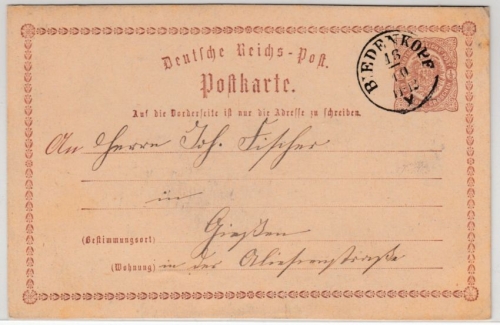 Deutsche Reichs-Post.
Postkarte.
BIEDENKOPF
16
10
Auf die Vorderseite ist nur die Adresse zu schreiben.
An Herrn Joh. Fischer
in
Gießen
(Bestimmungsort)
(Wohnung) in der